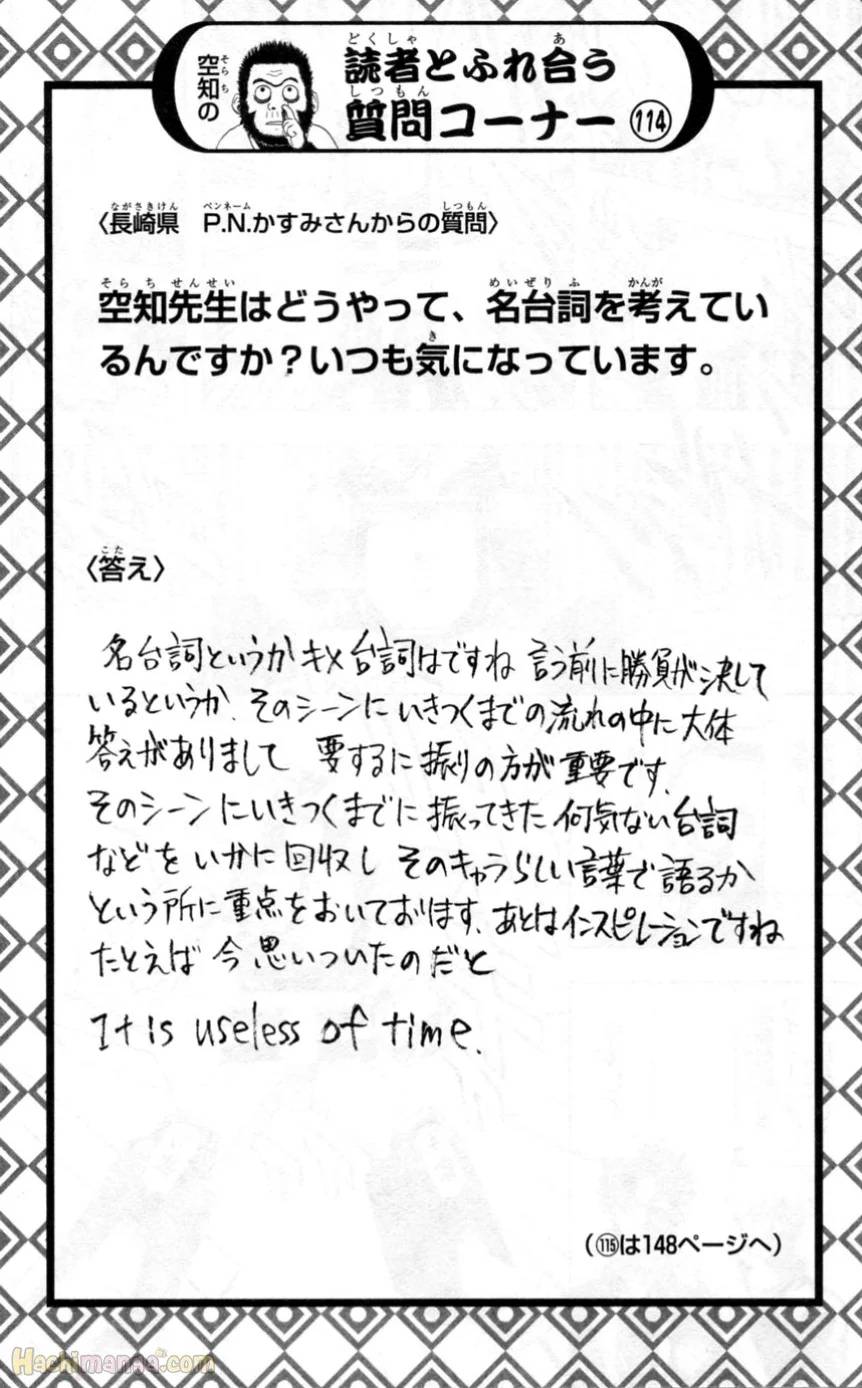 空知の
読者とふれ合う
質問コーナー ⑭
〈長崎県 P.N.かすみさんからの質問〉
空知先生はどうやって、名台詞を考えてい
るんですか?いつも気になっています。
〈答え〉
名台詞というかキメ台詞はですね 言う前に勝負が決して
いるというか、そのシーンにいきつくまでの流れの中に大体
答えがありまして 要するに振りの方が重要です。
そのシーンにいきつくまでに振ってきた何気ない台詞
などをいかに回収し そのキャラらしい言葉で語るか
という所に重点をおいております、あとはインスピレーションですね
たとえば今思いついたのだと
It is useless of time.
(115は148ページへ)
Hachimanga.com